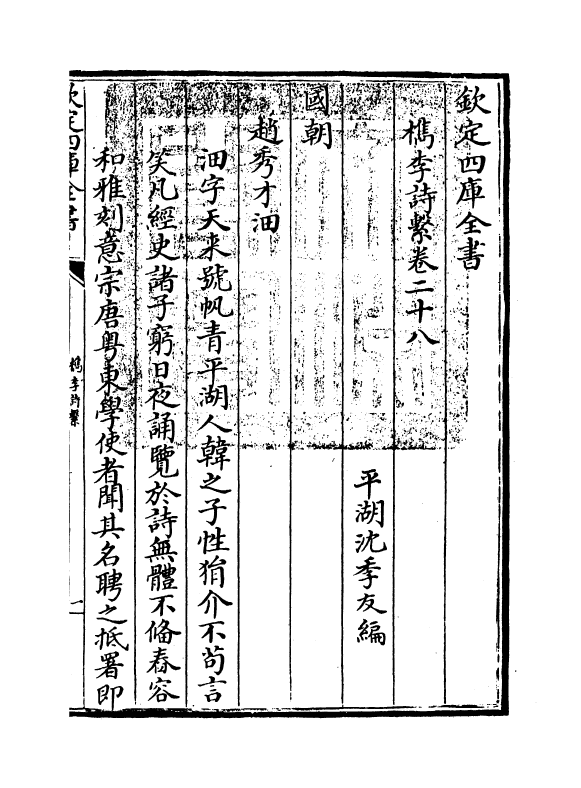 欽定四庫全書
檇李詩繫卷二十八
平湖沈季友編
國朝
趙秀才沺
沺字天来號帆青平湖人韓之子性狷介不苟言
笑凡經史諸子窮日夜誦覽於詩無體不俻舂容
和雅刻意宗唐粤東學使者聞其名聘之抵署即
欽定四庫全書
檇李詩繫